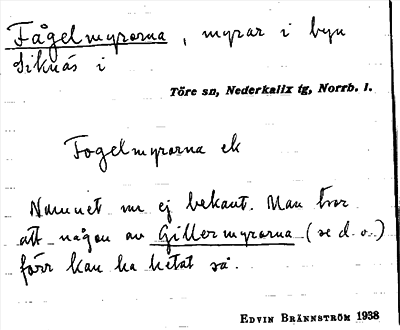 Fågelmyrorna, myrar i byn
Siknäs i
Töre sn, Nederkalix tg, Norrb. l.
Fogelmyrorna ek
Namnet nu ej bekant. Man tror
att någon av Gillermyrorna (se d. o.)
förr kan ha hetat så.
EDVIN BRÄNNSTRÖM 1938